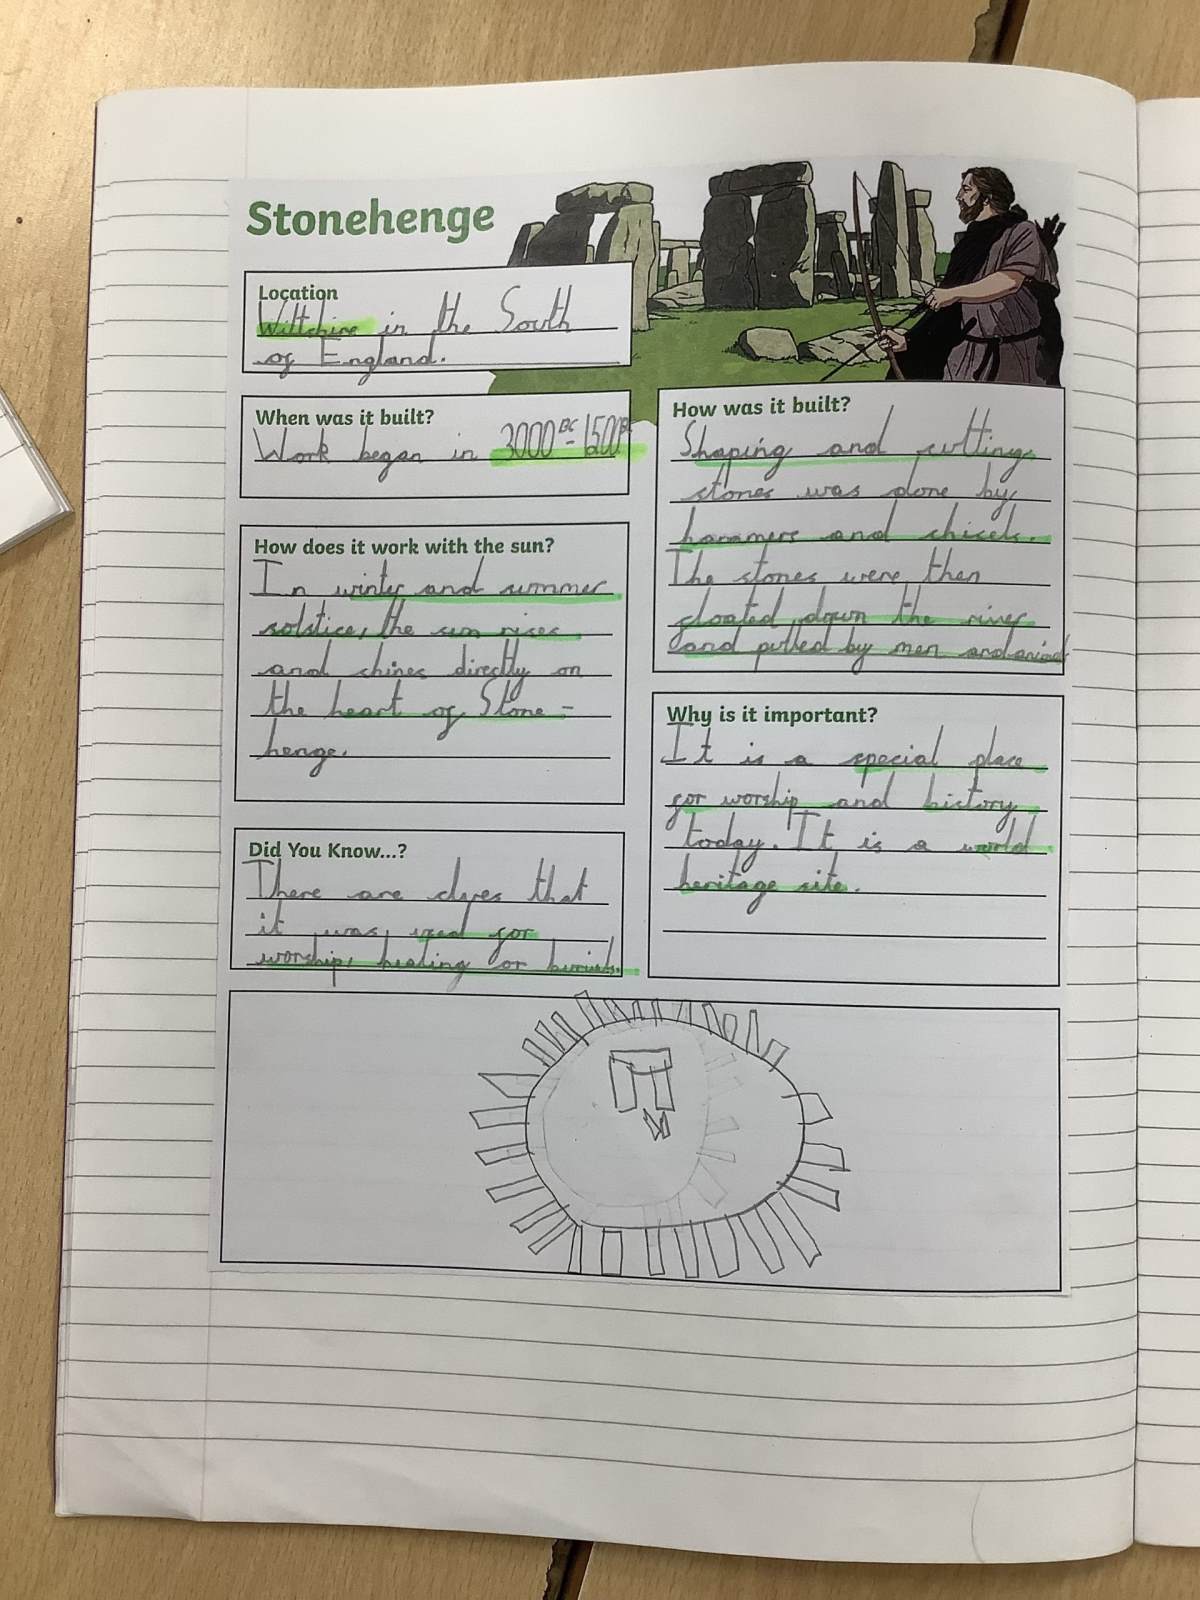 Stonehenge
Location
Wiltchire in the South
of England.
When was it built?
Work began in 3000BC - 1500BC
How does it work with the sun?
In winter and summer
solstice, the sun rises
and shines directly on
the heart of Stone -
henge.
Did You Know...?
There are clues that
it was used for
worship, healing or burials.
How was it built?
Shaping and cutting
stones was done by
hammers and chisels.
The stones were then
floated down the river
and pulled by men and animals
Why is it important?
It is a special place
for worship and history
today. It is a world
heritage site.